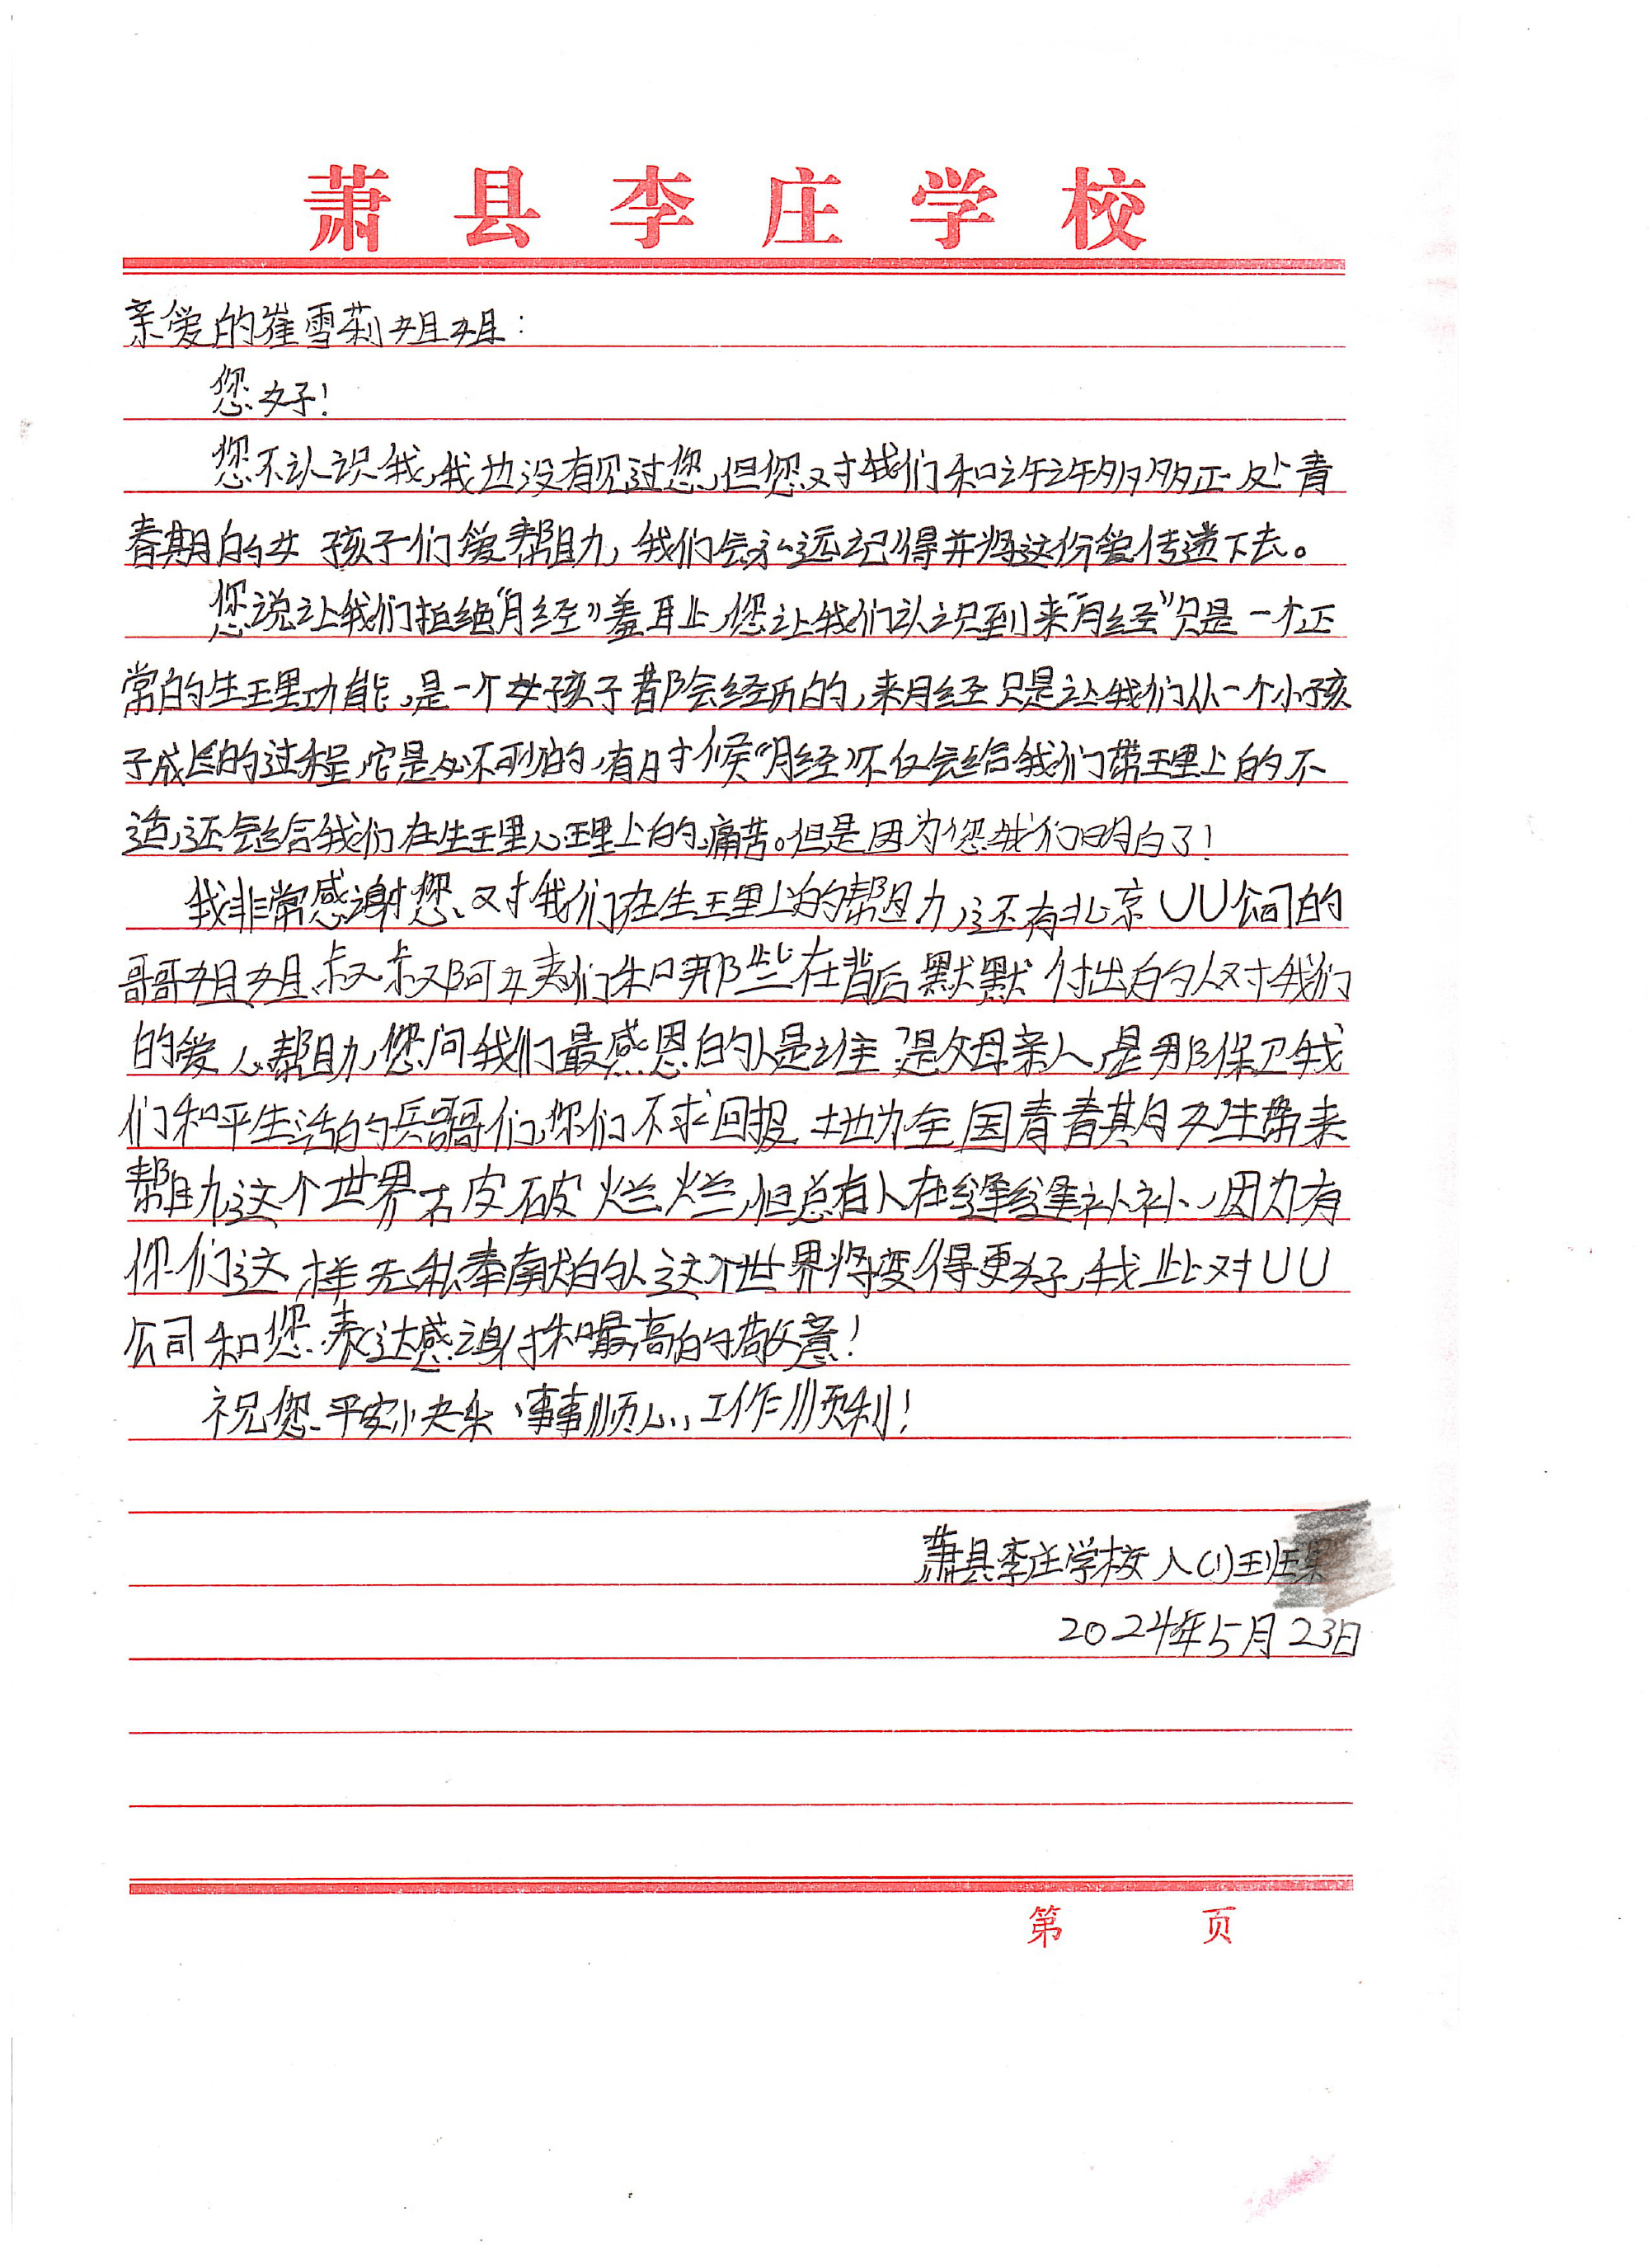 萧县李庄学校
亲爱的崔雪莉姐姐：
您好！
您不认识我，我也没有见过您，但您对我们和许许多多正处青
春期的女孩子们爱帮助，我们会永远记得并将这份爱传递下去。
您说让我们拒绝“月经”羞耻，您让我们认识到来“月经”只是一个正
常的生理功能，是一个女孩子都会经历的，来月经只是让我们从一个小孩
子成长的过程，它是必不可少的，有时候“月经”不仅会给我们带理上的不
适，还会给我们在生理心理上的痛苦。但是因为您我们明白了！
我非常感谢您、对我们在生理上的帮助，还有北京UU公司的
哥哥姐姐、叔叔阿姨们和那些在背后默默付出的人对我们
的爱心帮助，您问我们最感恩的人是谁？是父母亲人，是那保卫我
们和平生活的兵哥哥们，你们不求回报地为全国青春期女生带来
帮助，这个世界破破烂烂，但总有人在缝缝补补、因为有
你们这样无私奉献的人这个世界将变得更好，我此对UU
公司和您表达感谢和最高的敬意！
祝您平安快乐、事事顺心、工作顺利！
萧县李庄学校八(1)班
2024年5月23日
第 页